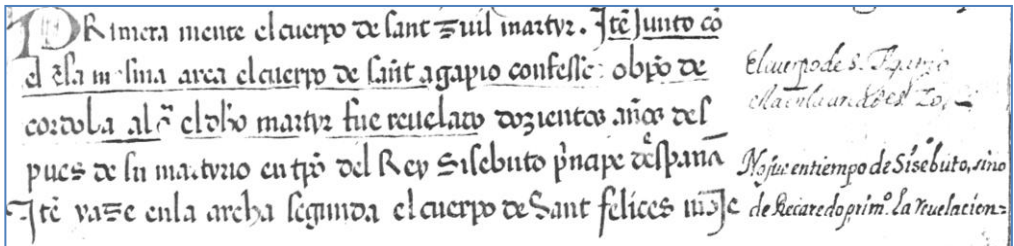 PRimera mente el cuerpo de sant zuil martyr. Itẽ Junto cõ
el ẽla mesma arca el cuerpo de sant agapio confessor obpo de
cordoba al q̃l el dho martyr fue reuelado dozientos años des
pues de su martyrio en tpõ del Rey Sisebuto p̃ncipe d̃españa
Itẽ yaze enla archa segunda el cuerpo de Sant felices mõje
El cuerpo de S.
No fue en tiempo de Sisebuto, sino
de Recaredo primº. la reuelacion